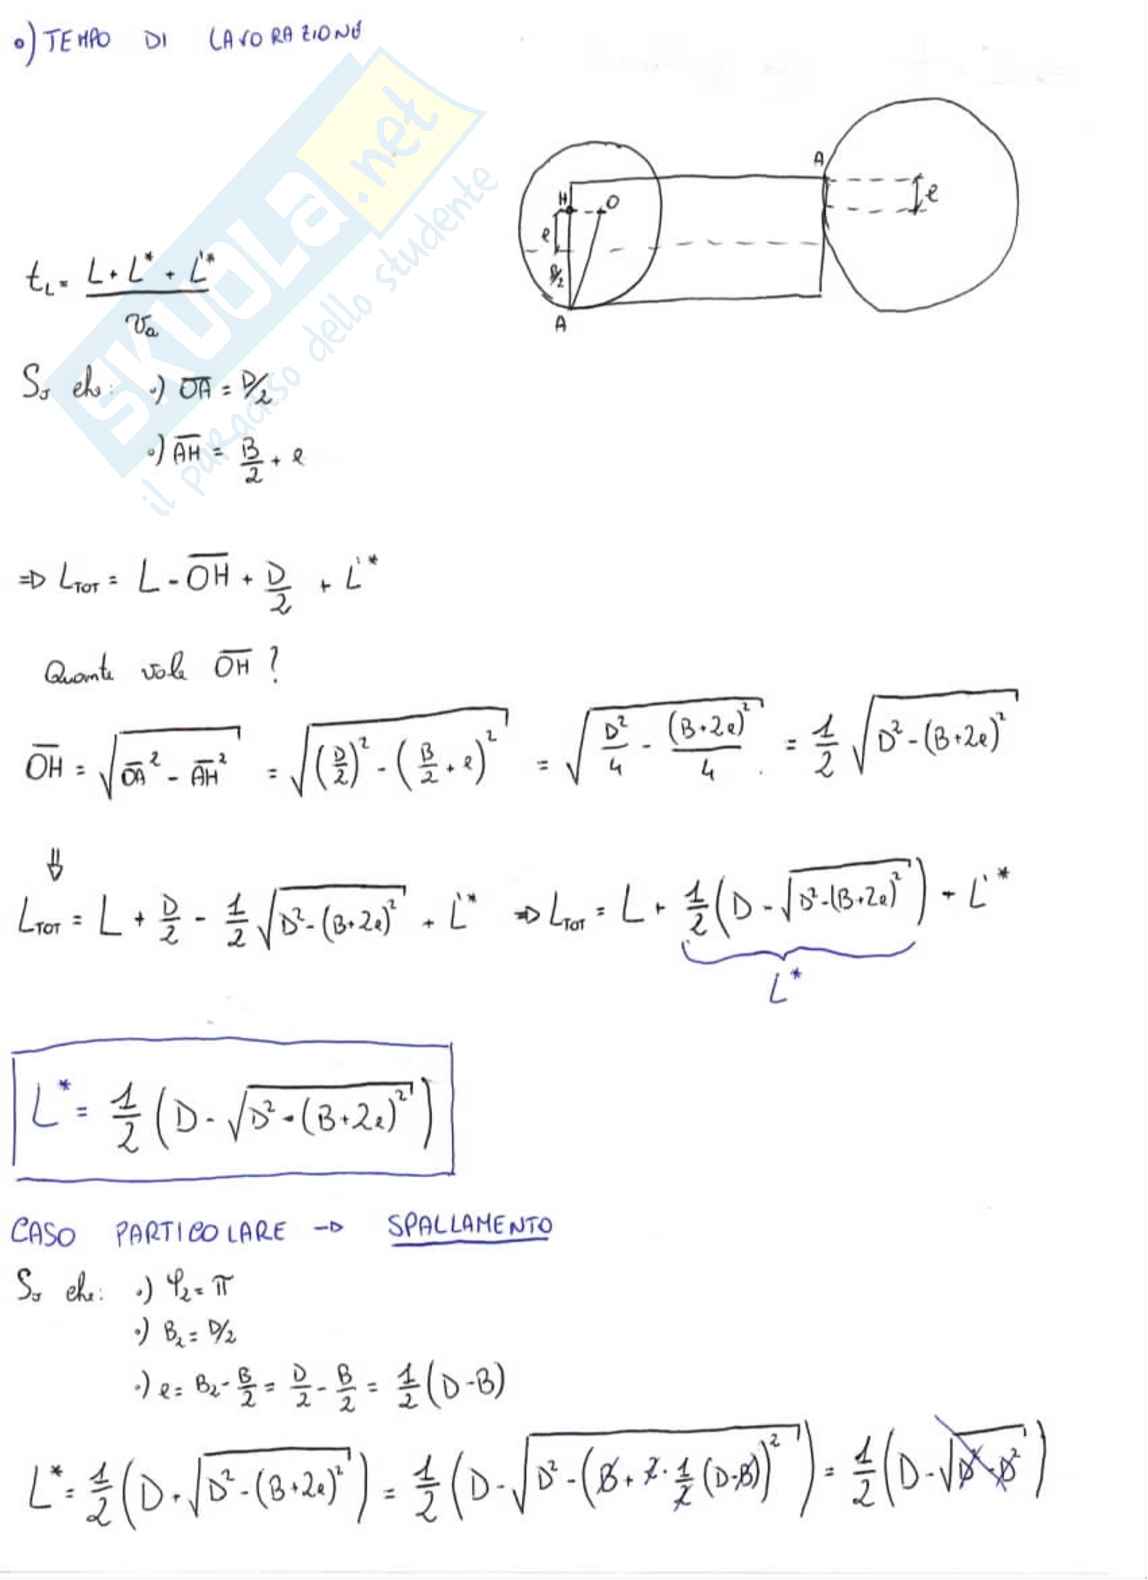 •) TEMPO DI LAVORAZIONE
SKUOLA.net
il paradiso dello studente
A
H O
e
e
B/2
A
t_L = (L + L* + L'*) / v_a
So che: •) OA̅ = D/2
•) AH̅ = B/2 + e
⇒ L_TOT = L - OH̅ + D/2 + L'*
Quanto vale OH̅ ?
OH̅ = √(OA̅² - AH̅²) = √((D/2)² - (B/2 + e)²) = √(D²/4 - (B+2e)²/4) = 1/2 √(D² - (B+2e)²)
⇓
L_TOT = L + D/2 - 1/2 √(D² - (B+2e)²) + L'* ⇒ L_TOT = L + 1/2 (D - √(D² - (B+2e)²)) + L'*
L*
L* = 1/2 (D - √(D² - (B+2e)²))
CASO PARTICOLARE → SPALLAMENTO
So che: •) φ₂ = π
•) B₂ = D/2
•) e = B₂ - B/2 = D/2 - B/2 = 1/2 (D-B)
L* = 1/2 (D - √(D² - (B+2e)²)) = 1/2 (D - √(D² - (B + 2 · 1/2 (D-B))²)) = 1/2 (D - √(D² - D²))